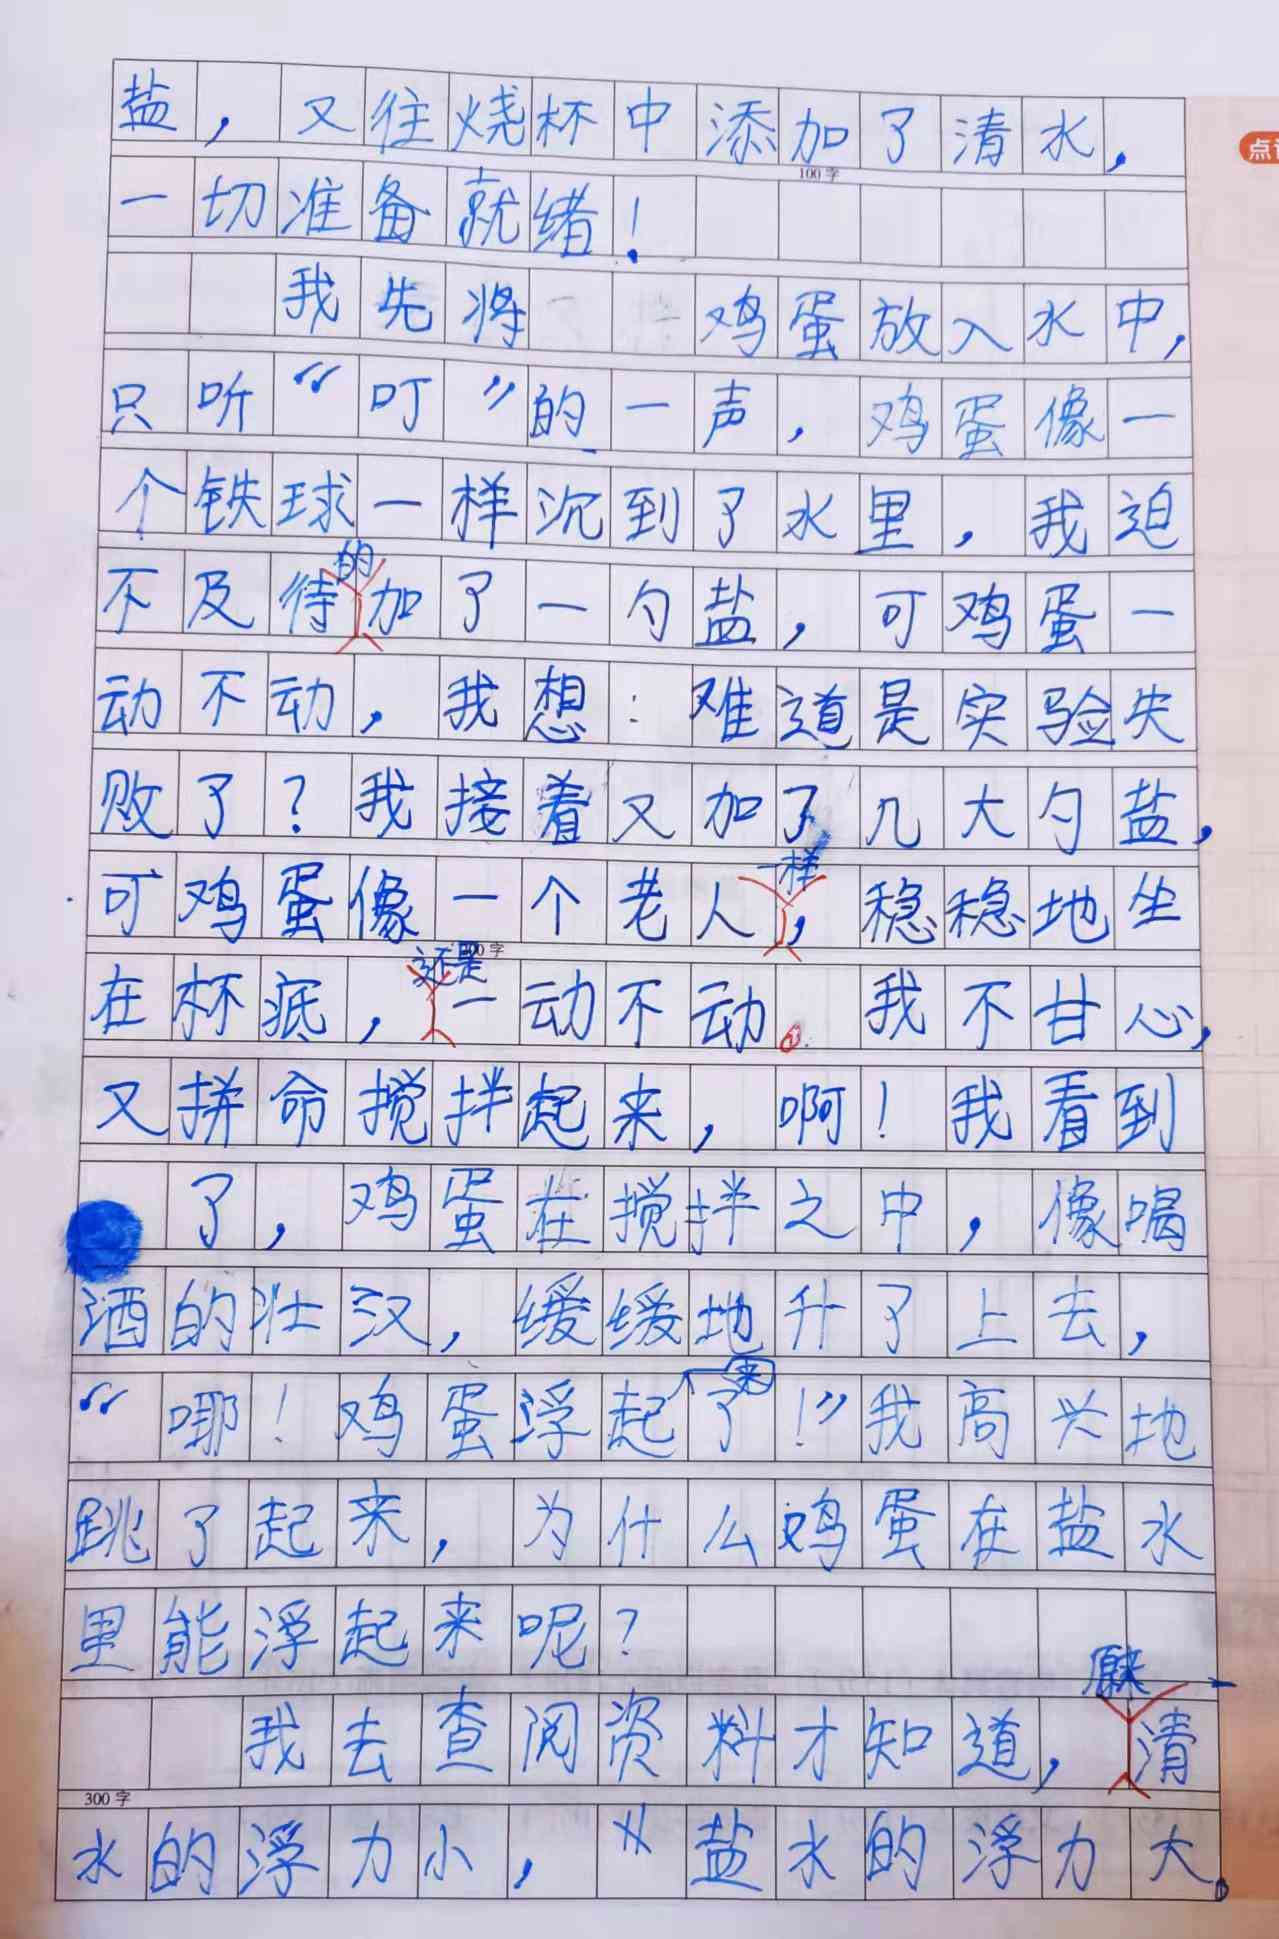 盐，又往烧杯中添加了清水，
100字
一切准备就绪！
我先将鸡蛋放入水中，
只听“叮”的一声，鸡蛋像一
个铁球一样沉到了水里，我迫
不及待的加了一勺盐，可鸡蛋一
动不动，我想：难道是实验失
败了？我接着又加了几大勺盐，
可鸡蛋像一个老人一样，稳稳地坐
在杯底，还是一动不动。我不甘心，
又拼命搅拌起来，啊！我看到
了，鸡蛋在搅拌之中，像喝
酒的壮汉，缓缓地升了上去，
“哪！鸡蛋浮起来了！”我高兴地
跳了起来，为什么鸡蛋在盐水
里能浮起来呢？
我去查阅资料才知道，原来清
300字
水的浮力小，盐水的浮力大。
点